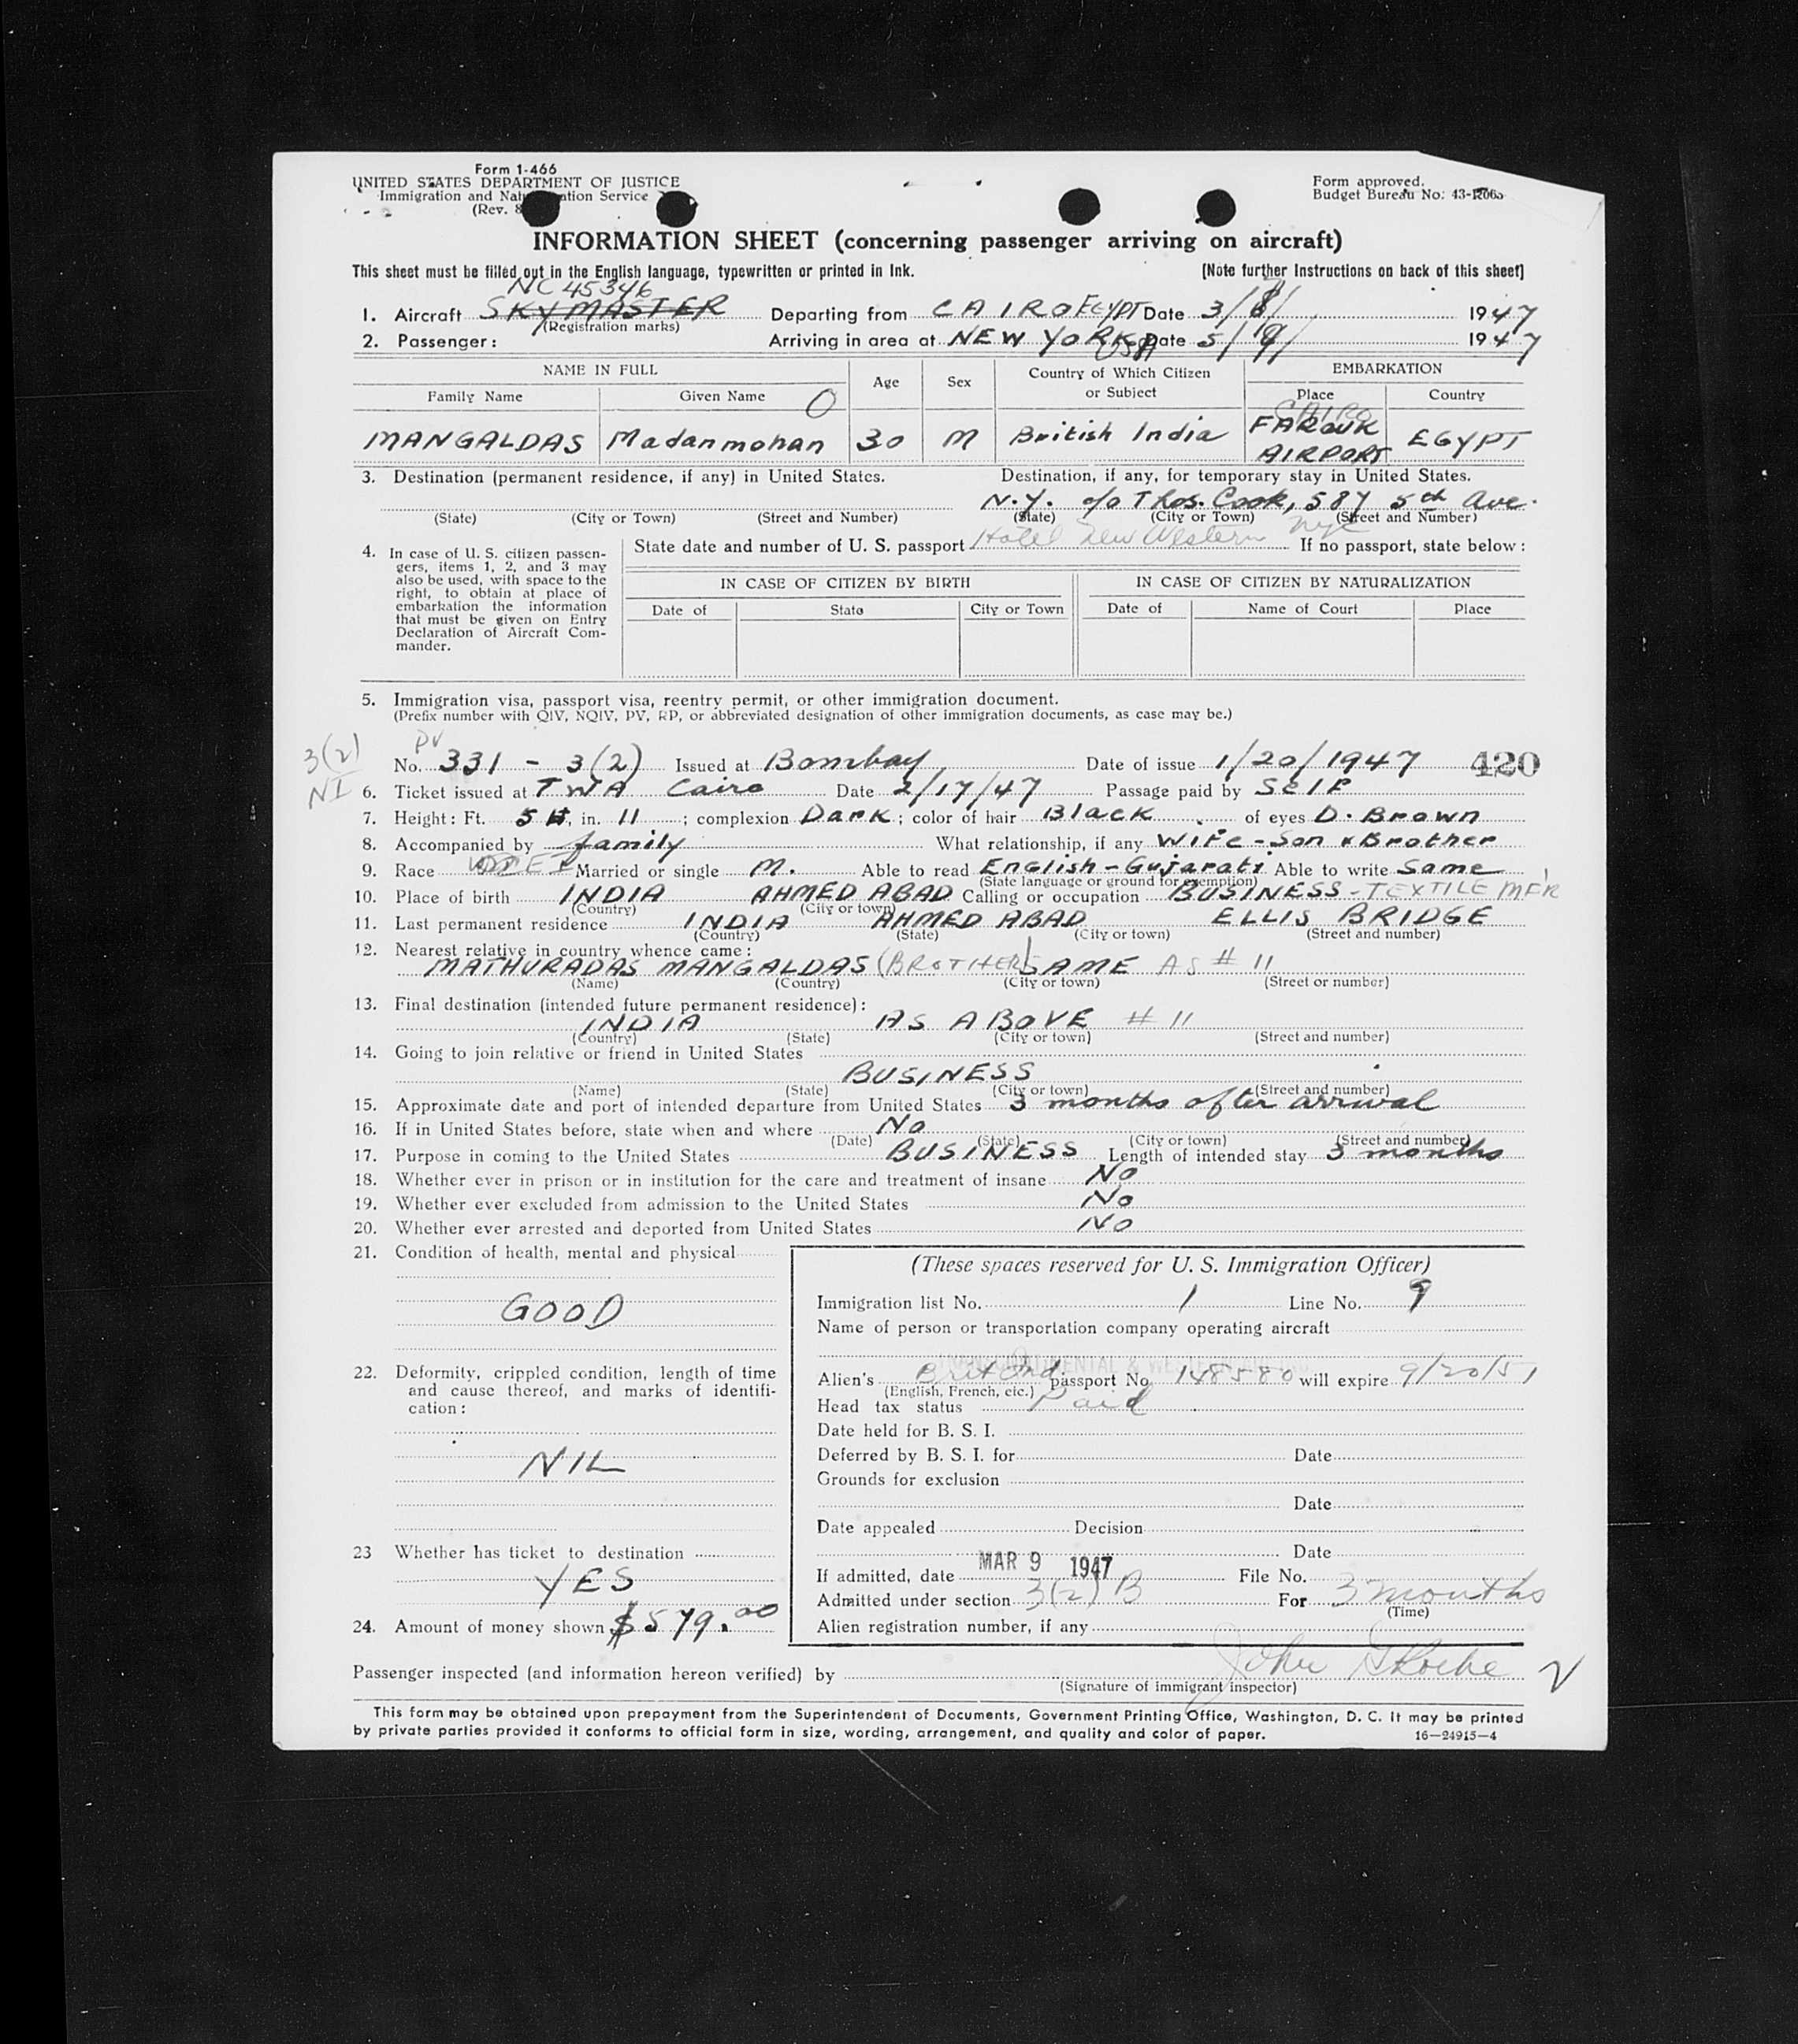 Form 1-466
UNITED STATES DEPARTMENT OF JUSTICE
Immigration and Naturalization Service
(Rev. 8
Form approved.
Budget Bureau No. 43-R063
INFORMATION SHEET (concerning passenger arriving on aircraft)
This sheet must be filled out in the English language, typewritten or printed in Ink. [Note further Instructions on back of this sheet]
NC 45346
1. Aircraft SKYMASTER Departing from CAIRO EGYPT Date 3/8/ 1947
(Registration marks)
2. Passenger: Arriving in area at NEW YORK USA Date 5/9/ 1947
NAME IN FULL Age Sex Country of Which Citizen or Subject EMBARKATION
Family Name Given Name Place Country
O CAIRO
MANGALDAS Madanmohan 30 M British India FAROUK AIRPORT EGYPT
3. Destination (permanent residence, if any) in United States. Destination, if any, for temporary stay in United States.
N.Y. c/o Thos. Cook, 587 5th Ave.
(State) (City or Town) (Street and Number) (State) (City or Town) (Street and Number)
Hotel New Western NYC
4. In case of U. S. citizen passengers, items 1, 2, and 3 may also be used, with space to the right, to obtain at place of embarkation the information that must be given on Entry Declaration of Aircraft Commander.
State date and number of U. S. passport If no passport, state below:
IN CASE OF CITIZEN BY BIRTH IN CASE OF CITIZEN BY NATURALIZATION
Date of State City or Town Date of Name of Court Place
5. Immigration visa, passport visa, reentry permit, or other immigration document.
(Prefix number with QIV, NQIV, PV, RP, or abbreviated designation of other immigration documents, as case may be.)
3(2) NI
PV
No. 331 - 3(2) Issued at Bombay Date of issue 1/20/1947 420
6. Ticket issued at TWA Cairo Date 2/17/47 Passage paid by Self
7. Height: Ft. 5, in. 11; complexion Dark; color of hair Black of eyes D. Brown
8. Accompanied by family What relationship, if any Wife - Son & Brother
9. Race Married or single M. Able to read English - Gujarati Able to write Same
(State language or ground for exemption)
10. Place of birth INDIA AHMEDABAD Calling or occupation BUSINESS - TEXTILE MFR
(Country) (City or town)
11. Last permanent residence INDIA AHMEDABAD ELLIS BRIDGE
(Country) (State) (City or town) (Street and number)
12. Nearest relative in country whence came:
MATHURADAS MANGALDAS (BROTHER) SAME AS # 11
(Name) (Country) (City or town) (Street or number)
13. Final destination (intended future permanent residence):
INDIA AS ABOVE # 11
(Country) (State) (City or town) (Street and number)
14. Going to join relative or friend in United States
BUSINESS
(Name) (State) (City or town) (Street and number)
15. Approximate date and port of intended departure from United States 3 months after arrival
16. If in United States before, state when and where No
(Date) (State) (City or town) (Street and number)
17. Purpose in coming to the United States BUSINESS Length of intended stay 3 months
18. Whether ever in prison or in institution for the care and treatment of insane No
19. Whether ever excluded from admission to the United States No
20. Whether ever arrested and deported from United States No
21. Condition of health, mental and physical
GOOD
22. Deformity, crippled condition, length of time and cause thereof, and marks of identification:
NIL
23 Whether has ticket to destination
YES
24. Amount of money shown $579.00
(These spaces reserved for U. S. Immigration Officer)
Immigration list No. 1 Line No. 9
Name of person or transportation company operating aircraft
Alien's Brit Ind passport No. 148580 will expire 9/20/51
(English, French, etc.)
Head tax status Paid
Date held for B. S. I.
Deferred by B. S. I. for Date
Grounds for exclusion
Date
Date appealed Decision
Date
If admitted, date MAR 9 1947 File No.
Admitted under section 3(2) B For 3 months
(Time)
Alien registration number, if any
Passenger inspected (and information hereon verified) by
(Signature of immigrant inspector)
This form may be obtained upon prepayment from the Superintendent of Documents, Government Printing Office, Washington, D. C. It may be printed
by private parties provided it conforms to official form in size, wording, arrangement, and quality and color of paper. 16—24915-4